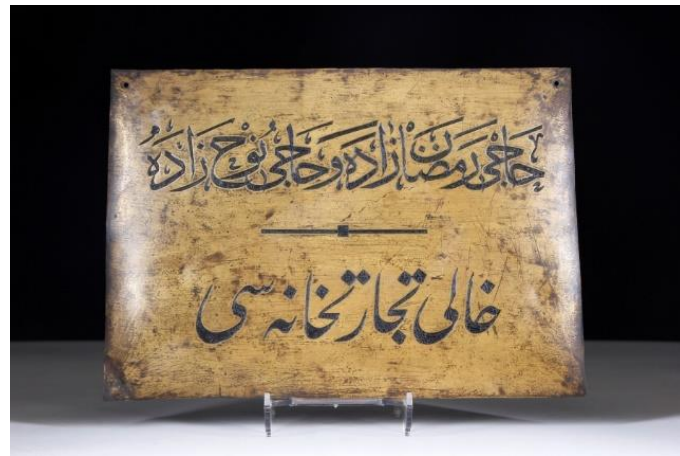 حاجی رمضان زاده و حاجی نوح زاده
خالی تجارتخانه سی